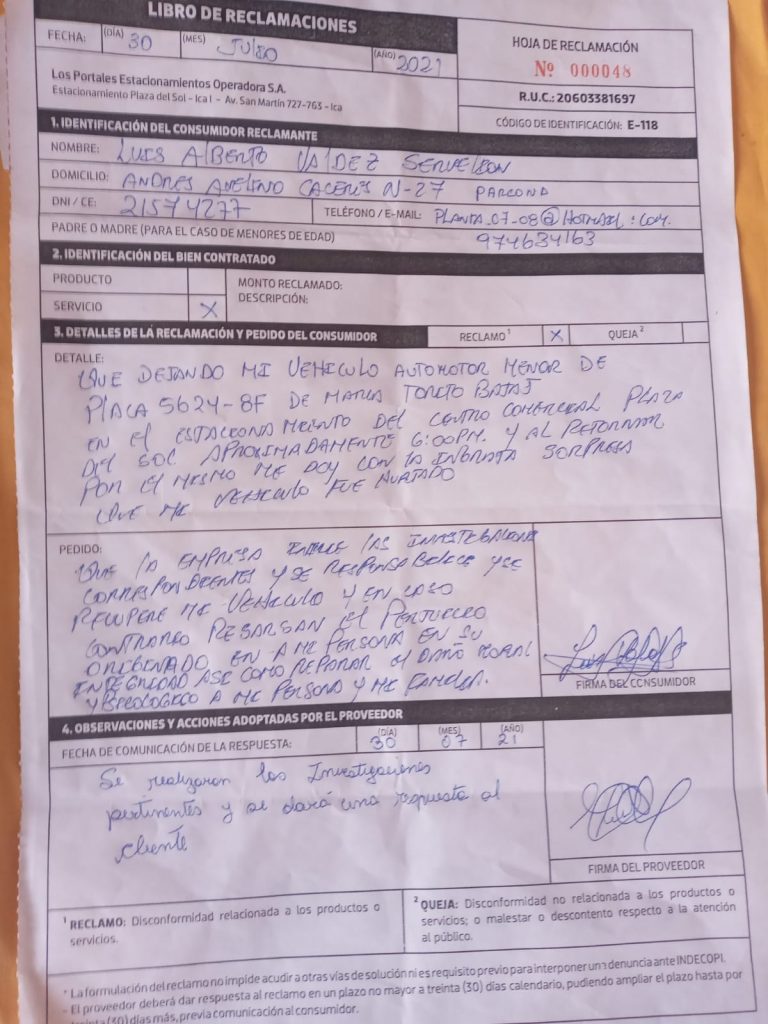 LIBRO DE RECLAMACIONES
FECHA: (DÍA) 30 (MES) JULIO (AÑO) 2021
HOJA DE RECLAMACIÓN
Nº 000048
Los Portales Estacionamientos Operadora S.A.
Estacionamiento Plaza del Sol - Ica I - Av. San Martín 727-763 - Ica
R.U.C.: 20603381697
CÓDIGO DE IDENTIFICACIÓN: E-118
1. IDENTIFICACIÓN DEL CONSUMIDOR RECLAMANTE
NOMBRE: LUIS ALBERTO VALDEZ
DOMICILIO: ANDRES AVELINO CACERES N-27 PARCONA
DNI / CE: 21574277
TELÉFONO / E-MAIL: PLANTA_07-08@HOTMAIL.COM.
974634163
PADRE O MADRE (PARA EL CASO DE MENORES DE EDAD)
2. IDENTIFICACIÓN DEL BIEN CONTRATADO
PRODUCTO
SERVICIO X
MONTO RECLAMADO:
DESCRIPCIÓN:
3. DETALLES DE LA RECLAMACIÓN Y PEDIDO DEL CONSUMIDOR
RECLAMO¹ X QUEJA²
DETALLE:
QUE DEJANDO MI VEHICULO AUTOMOTOR MENOR DE
PLACA 5624-8F DE MARCA TORITO BAJAJ
EN EL ESTACIONAMIENTO DEL CENTRO COMERCIAL PLAZA
DEL SOL APROXIMADAMENTE 6:00PM. Y AL RETORNAR
POR EL MISMO ME DOY CON LA INGRATA SORPRESA
QUE MI VEHICULO FUE HURTADO
PEDIDO:
QUE LA EMPRESA LAS
CORRESPONDIENTES Y SE RESPONSABILICE Y SE
RECUPERE MI VEHICULO Y EN CASO
CONTRARIO EL PERJUICIO
ORIGINADO EN A MI PERSONA EN SU
INTEGRIDAD ASI COMO REPARAR EL DAÑO MORAL
A MI PERSONA Y MI FAMILIA.
FIRMA DEL CONSUMIDOR
4. OBSERVACIONES Y ACCIONES ADOPTADAS POR EL PROVEEDOR
FECHA DE COMUNICACIÓN DE LA RESPUESTA: (DÍA) 30 (MES) 07 (AÑO) 21
Se realizaran las Investigaciones
pertinentes y se dará una respuesta al
cliente
FIRMA DEL PROVEEDOR
¹ RECLAMO: Disconformidad relacionada a los productos o
servicios.
² QUEJA: Disconformidad no relacionada a los productos o
servicios; o malestar o descontento respecto a la atención
al público.
* La formulación del reclamo no impide acudir a otras vías de solución ni es requisito previo para interponer una denuncia ante INDECOPI.
- El proveedor deberá dar respuesta al reclamo en un plazo no mayor a treinta (30) días calendario, pudiendo ampliar el plazo hasta por
treinta (30) días más, previa comunicación al consumidor.